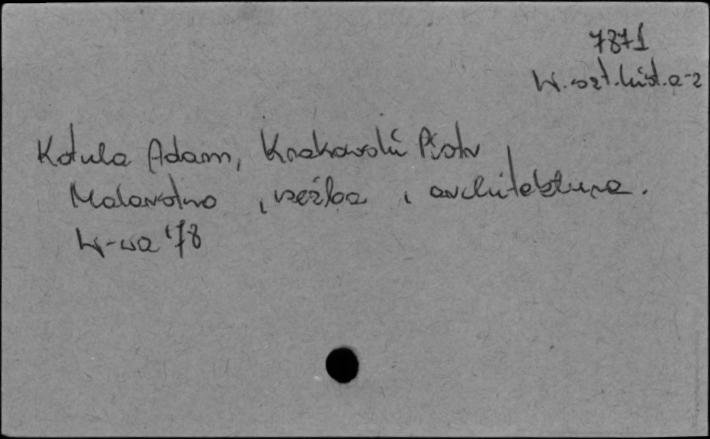 7871
W. szt. hist. a-z
Kotula Adam, Krakowski Piotr
Malarstwo, rzeźba, architektura.
W-wa '78